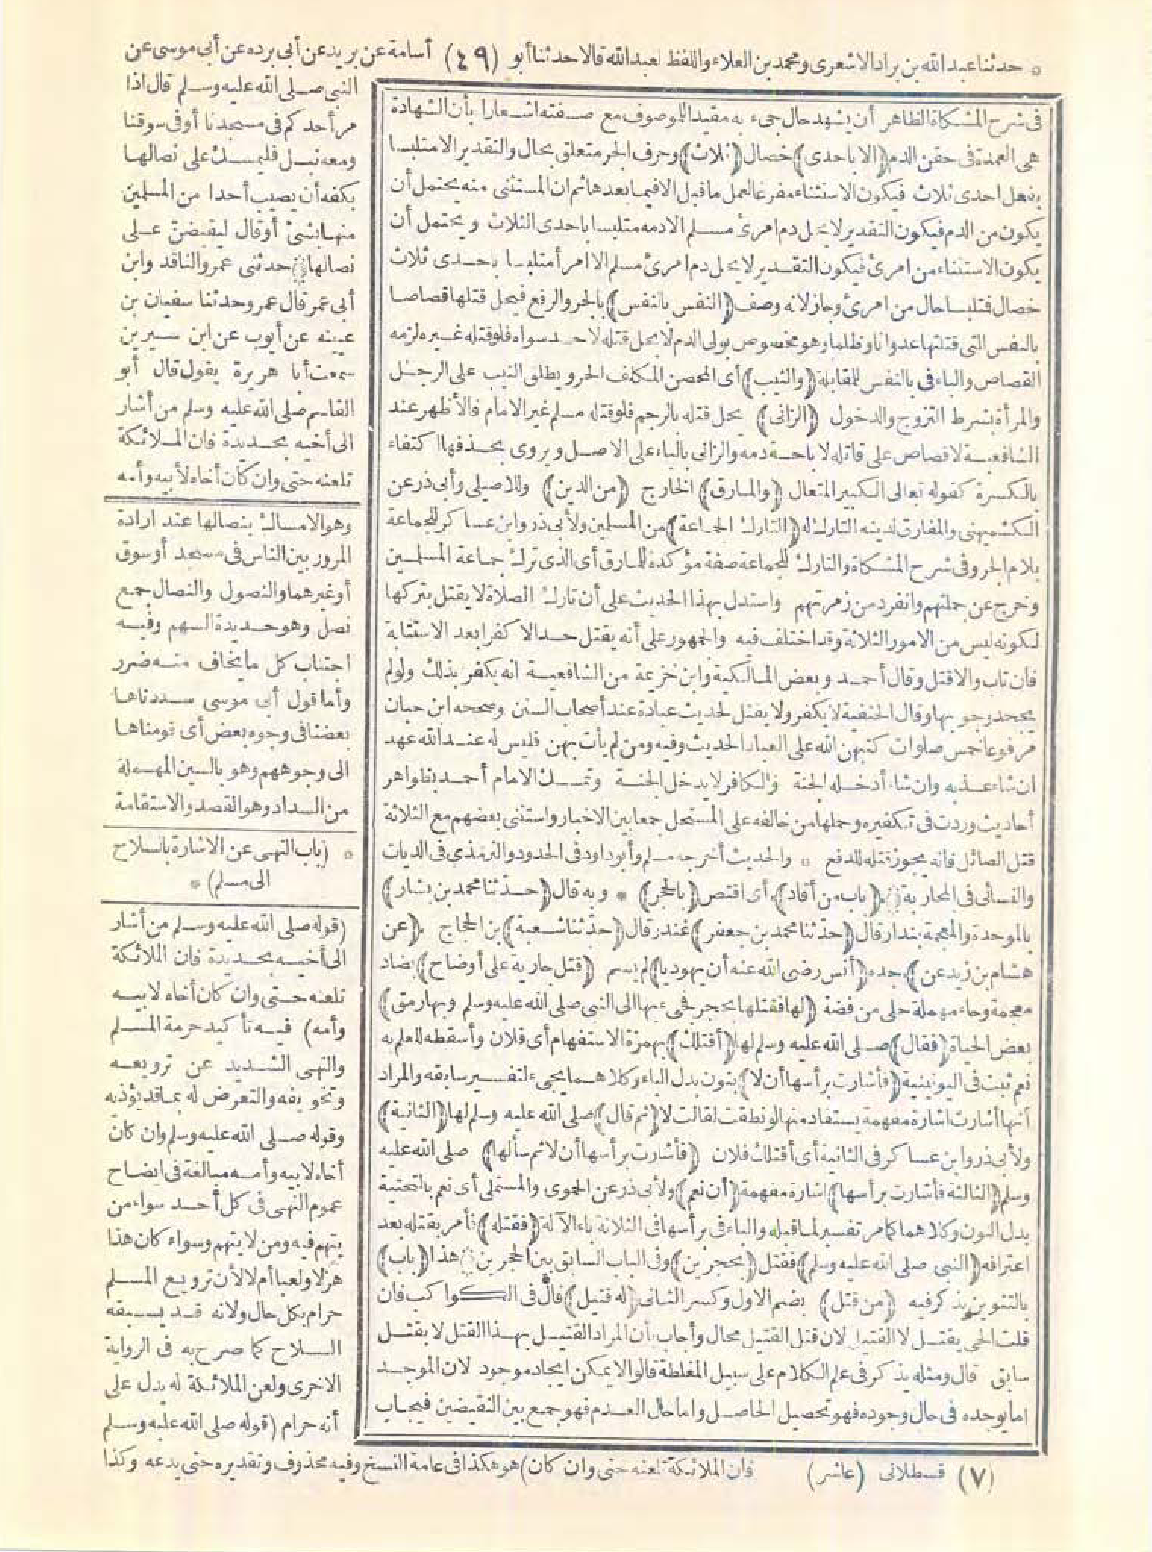 * حدثنا عبد الله بن براد الاشعرى ومحمد بن العلاء واللفظ لعبد الله قالا حدثنا أبو (٤٩) أسامة عن بريد عن أبى برده عن أبى موسى عن
النبى صلى الله عليه وسلم قال اذا
مر أحدكم فى مسجدنا أو فى سوقنا
ومعه نبل فليمسك على نصالها
بكفه أن يصيب أحدا من المسلمين
منها بشئ أو قال ليقبض على
نصالها حدثنى عمرو الناقد وابن
أبى عمر قال عمرو حدثنا سفيان بن
عيينه عن أيوب عن ابن سيرين
سمعت أبا هريرة يقول قال أبو
القاسم صلى الله عليه وسلم من أشار
الى أخيه بحديدة فان الملائكة
تلعنه حتى وان كان أخاه لأبيه وأمه
وهو الامساك بنصالها عند ارادة
المرور بين الناس فى مسجد أو سوق
أو غيرهما والنصول والنصال جمع
نصل وهو حديدة السهم وفيه
اجتناب كل ما يخاف منه ضرر
وأما قول أبى موسى سددناها
بعضنا فى وجوه بعض أى قومناها
الى وجوههم وهو بالسين المهملة
من السداد وهو القصد والاستقامة
* (باب النهى عن الاشارة بالسلاح
الى مسلم) *
(قوله صلى الله عليه وسلم من أشار
الى أخيه بحديدة فان الملائكة
تلعنه حتى وان كان أخاه لابيه
وأمه) فيه تأكيد حرمة المسلم
والنهى الشديد عن ترويعه
وتخويفه والتعرض له بما قد يؤذيه
وقوله صلى الله عليه وسلم وان كان
أخاه لابيه وأمه مبالغة فى ايضاح
عموم النهى فى كل أحد سواء من
يتهم فيه ومن لا يتهم وسواء كان هذا
هزلا ولعبا أم لا لأن ترويع المسلم
حرام بكل حال ولانه قد يسبقه
السلاح كما صرح به فى الرواية
الاخرى ولعن الملائكة له يدل على
أنه حرام (قوله صلى الله عليه وسلم
فان الملائكة تلعنه حتى وان كان) هو هكذا فى عامة النسخ وفيه محذوف وتقديره حتى يدعه وكذا
فى شرح المشكاة الظاهر أن يشهد حال جىء به مقيدا للموصوف مع صفته اشعارا بأن الشهادة
هى العمدة فى حقن الدم (الا باحدى) خصال (ثلاث) وحرف الجر متعلق بحال والتقدير الا متلبسا
بفعل احدى ثلاث فيكون الاستثناء مفرغا لعمل ما قبل الا فيما بعدها ثم ان المستثنى منه يحتمل أن
يكون من الدم فيكون التقدير لا يحل دم امرئ مسلم الا دمه متلبسا باحدى الثلاث ويحتمل أن
يكون الاستثناء من امرئ فيكون التقدير لا يحل دم امرئ مسلم الا امرأ متلبسا باحدى ثلاث
خصال فتلبسا حال من امرئ وجاز لانه وصف (النفس بالنفس) بالجر والرفع فيحل قتلها قصاصا
بالنفس التى قتلتها عدوانا وظلما وهو مخصوص بولى الدم لا يحل قتله لاحد سواه فلو قتله غيره لزمه
القصاص والباء فى بالنفس للمقابلة (والثيب) أى المحصن المكلف الحر ويطلق الثيب على الرجل
والمرأة بشرط التزوج والدخول (الزانى) يحل قتله بالرجم فلو قتله مسلم غير الامام فالأظهر عند
الشافعية لا قصاص على قاتله لاباحة دمه والزانى بالياء على الاصل ويروى بحذفها اكتفاء
بالكسرة كقوله تعالى الكبير المتعال (والمارق) الخارج (من الدين) وللاصيلى وأبى ذر عن
الكشميهنى والمفارق لدينه التارك له (التارك الجماعة) من المسلمين ولأبى ذر وابن عساكر للجماعة
بلام الجر وفى شرح المشكاة والتارك للجماعة صفة مؤكدة للمارق أى الذى ترك جماعة المسلمين
وخرج عن جملتهم وانفرد من زمرتهم واستدل بهذا الحديث على أن تارك الصلاة لا يقتل بتركها
لكونه ليس من الامور الثلاثة وقد اختلف فيه والجمهور على أنه يقتل حدا لا كفرا بعد الاستتابة
فان تاب والا قتل وقال أحمد وبعض المالكية وابن خزيمة من الشافعية انه يكفر بذلك ولو لم
يجحد وجوبها وقال الحنفية لا يكفر ولا يقتل لحديث عبادة عند أصحاب السنن وصححه ابن حبان
مرفوعا خمس صلوات كتبهن الله على العباد الحديث وفيه ومن لم يأت بهن فليس له عند الله عهد
ان شاء عذبه وان شاء أدخله الجنة والكافر لا يدخل الجنة وتمسك الامام أحمد بظواهر
أحاديث وردت فى تكفيره وحملها من خالفه على المستحل جمعا بين الاخبار واستثنى بعضهم مع الثلاثة
قتل الصائل فانه يجوز قتله للدفع * والحديث أخرجه مسلم وأبو داود فى الحدود والترمذى فى الديات
والنسائى فى المحاربة (باب من أقاد) أى اقتص (بالحجر) * وبه قال (حدثنا محمد بن بشار)
بالموحدة والمعجمة بندار قال (حدثنا محمد بن جعفر) غندر قال (حدثنا شعبة) بن الحجاج (عن
هشام بن زيد عن) جده (أنس رضى الله عنه أن يهوديا) لم يسم (قتل جارية على أوضاح) بضاد
معجمة وحاء مهملة حلى من فضة (لها فقتلها بحجر فجىء بها الى النبى صلى الله عليه وسلم وبها رمق)
بعض الحياة (فقال) صلى الله عليه وسلم لها (أقتلك) بهمزة الاستفهام أى فلان وأسقطه للعلم به
نعم ثبت فى اليونينية (فأشارت برأسها أن لا) بنون بدل الياء وكلاهما يجىء لتفسير سابقه والمراد
أنها أشارت اشارة مفهمة يستفاد منها لو نطقت لقالت لا (ثم قال) صلى الله عليه وسلم لها (الثانية)
ولأبى ذر وابن عساكر فى الثانية أى أقتلك فلان (فأشارت برأسها أن لا ثم سألها) صلى الله عليه
وسلم (الثالثة فأشارت برأسها) اشارة مفهمة (أن نعم) ولأبى ذر عن الحموى والمستملى أى نعم بالتحتية
بدل النون وكلاهما كما مر تفسير لما قبله والباء فى برأسها فى الثلاثة باء الآلة (فقتله) فأمر بقتله بعد
اعترافه (النبى صلى الله عليه وسلم) فقتل (بحجرين) وفى الباب السابق بين الحجرين هذا (باب)
بالتنوين يذكر فيه (من قتل) بضم الاول وكسر الثانى (له قتيل) قال فى الكواكب فان
قلت الحى يقتل لا القتيل لان قتل القتيل محال وأجاب بأن المراد القتيل بهذا القتل لا بقتل
سابق قال ومثله يذكر فى علم الكلام على سبيل المغلطة قالوا لا يمكن ايجاد موجود لان الموجد
اما يوجده فى حال وجوده فهو تحصيل الحاصل واما حال العدم فهو جمع بين النقيضين فيجاب
(٧) قسطلانى (عاشر)